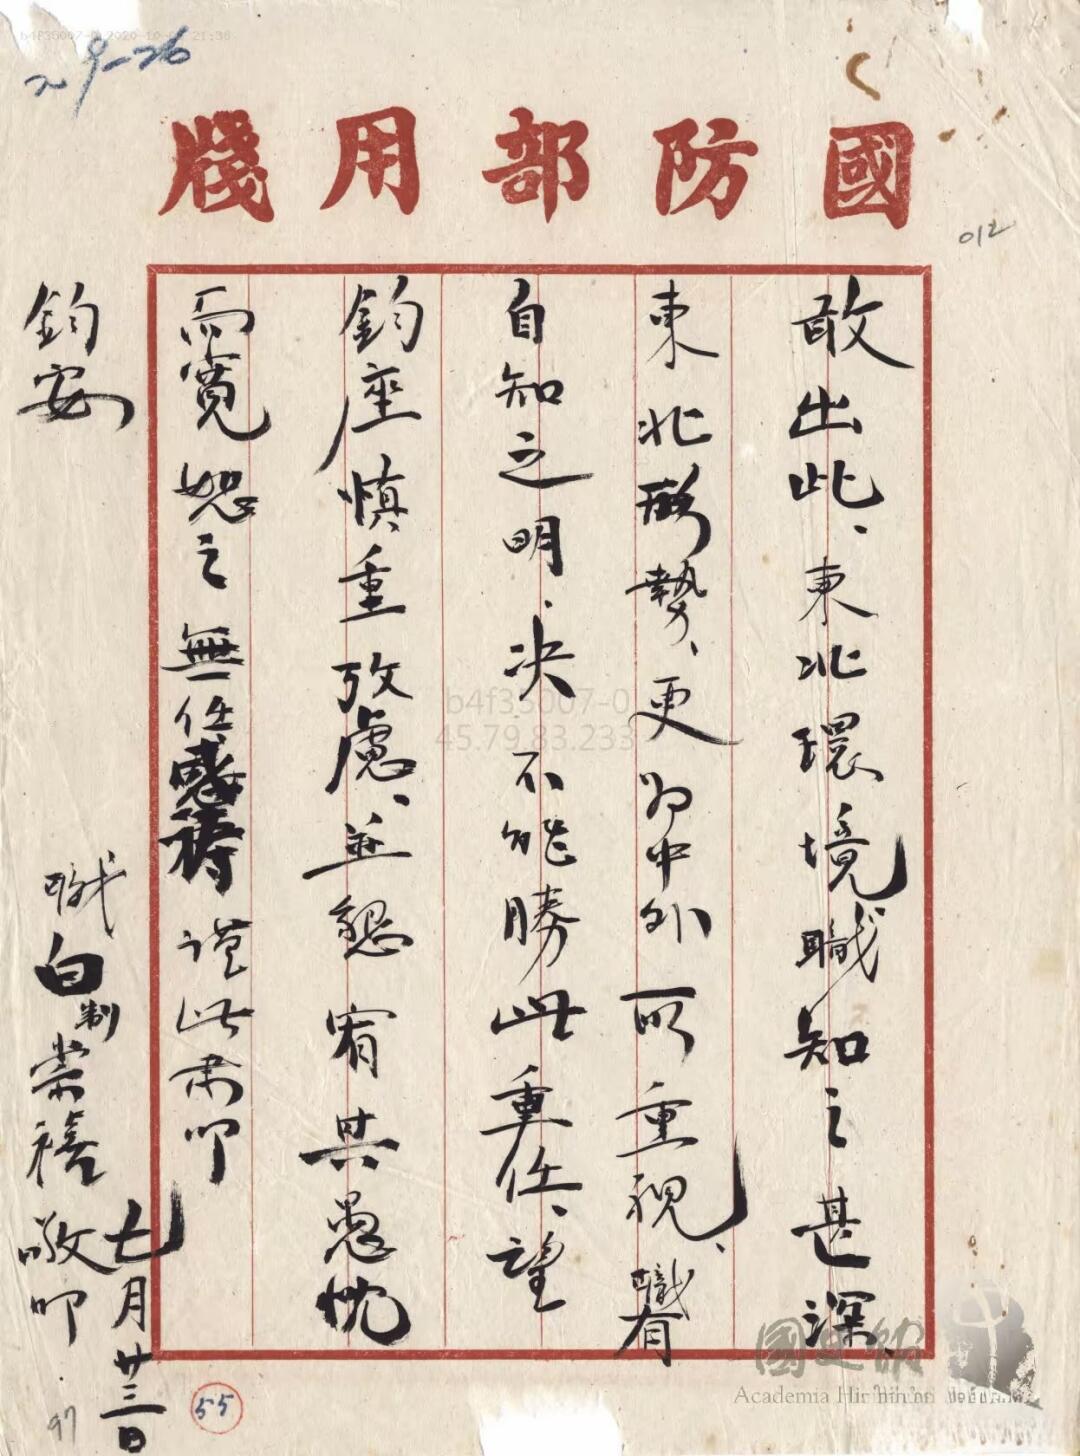 29-26
國防部用牋
012
敢出此、東北環境職知之甚深
東北形勢、更为中外所重視、職有
自知之明、决不能勝此重任、望
鈞座慎重攷慮、並懇宥其愚忱
而寬恕之無任感禱謹此肅叩
鈞安
職白崇禧敬叩
制
七月廿三日
55
97
b4f35007-0
45.79.83.233
國史館
Academia Historica